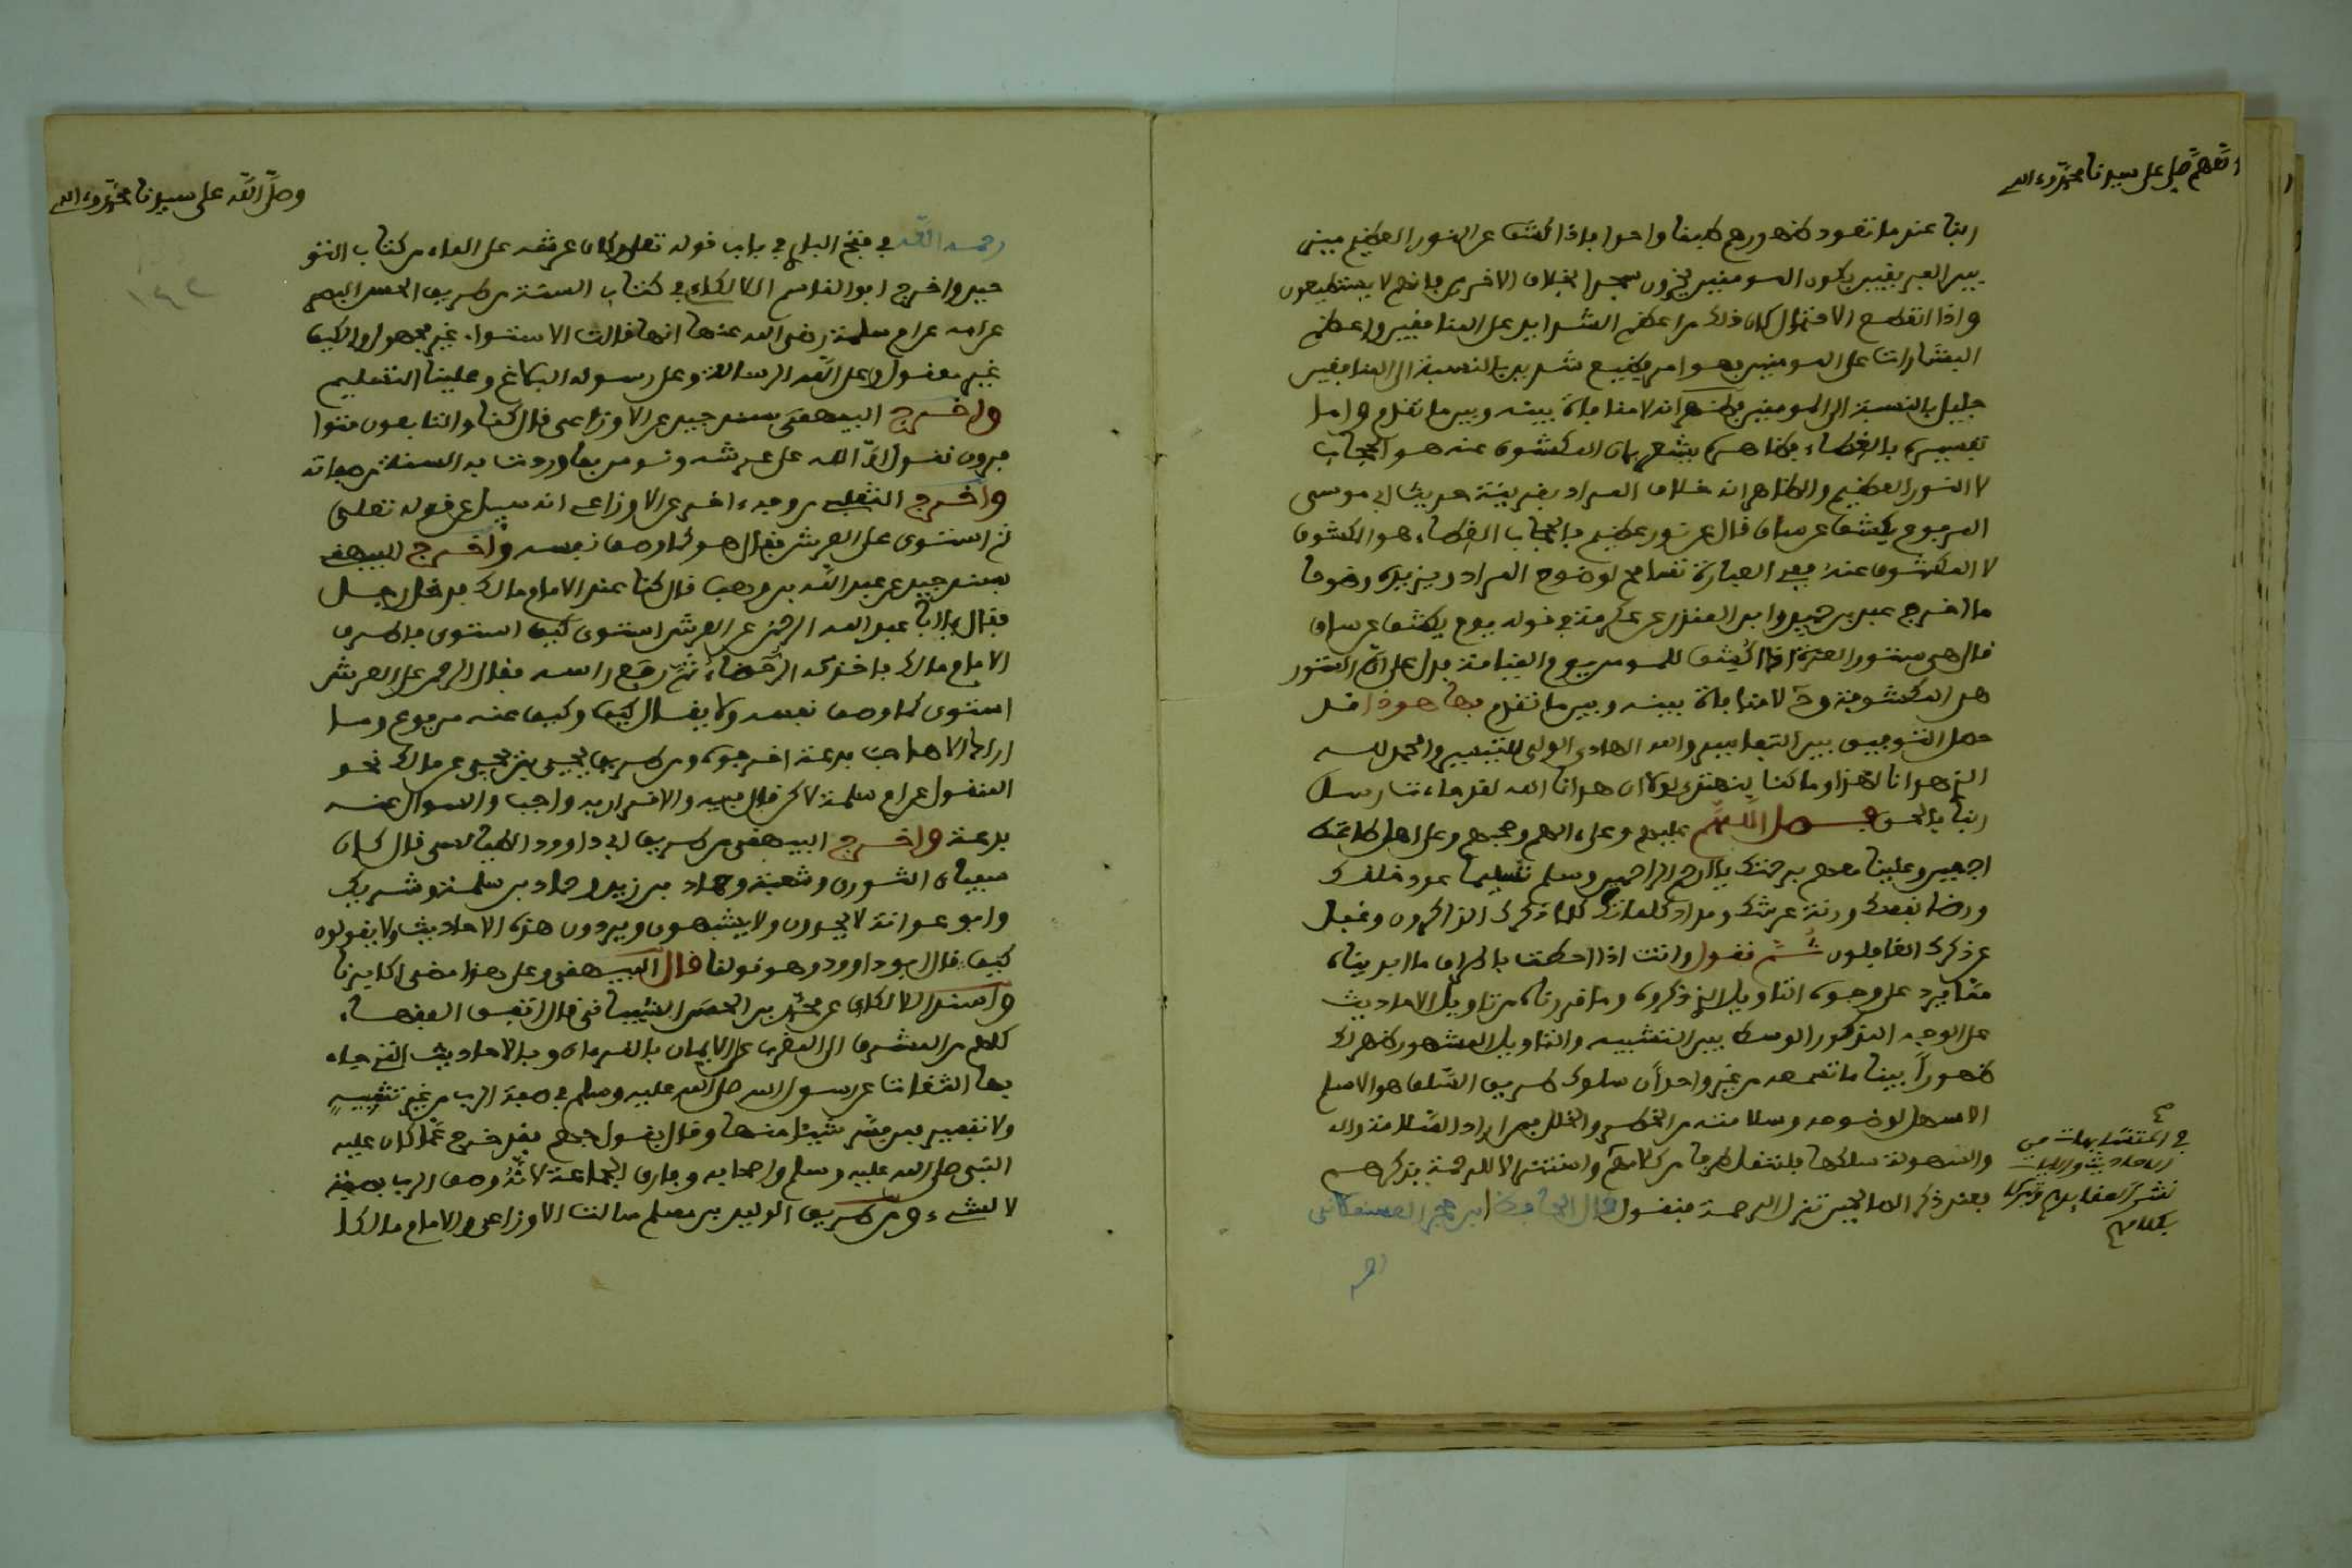 اللهم صل على سيدنا محمد وءاله
ربنا عندما تقوده ظهورهم طبقا واحدا فاذا كشف عن النور العظيم ميز
بين الفريقين فيكون المومنين يخرون سجدا بخلاف الاخرين فانهم لا يستطيعون
واذا انقطع الاحتمال كان ذلك من اعظم الشدايد على المنافقين واعظم
البشارات على المومنين فهو امر فظيع شديد بالنسبة الى المنافقين
جليل بالنسبة الى المومنين فظهر انه لا منافاة بينه وبين ما تقدم واما
تفسيره بالغطاء فظاهره يشعر بان المكشوف عنه هو الحجاب
لا النور العظيم والظاهر انه خلاف المراد بقرينة حديث ابي موسى
المرفوع يكشف عن ساق قال عن نور عظيم فالحجاب الغطاء هو المكشوف
لا المكشوف عنه ففي العبارة تسامح لوضوح المراد ويزيده وضوحا
ما اخرج عبد بن حميد وابن المنذر عن عكرمة في قوله يوم يكشف عن ساق
قال هي ستور العزة اذا كشف للمومن يوم القيامة فدل على ان الستور
هي المكشوفة و لا منافاة بينه وبين ما تقدم فها هو ذا قد
حصل التوفيق بين التفاسير والله الهادي الولي للتيسير والحمد لله
الذي هدانا لهذا وما كنا لنهتدي لولا ان هدانا الله لقد جاءت رسل
ربنا بالحق فصل اللهم عليهم وعلى ءالهم وصحبهم وعلى اهل طاعتك
اجمعين وعلينا معهم برحمتك يا ارحم الراحمين وسلم تسليما عدد خلقك
ورضا نفسك وزنة عرشك ومداد كلماتك كلما ذكرك الذاكرون وغفل
عن ذكرك الغافلون ثم نقول وانت اذا احطت باطراف ما ابديناه
مما يرد على وجوه التاويل الذي ذكروه وما قررناه من تاويل الاحاديث
على الوجه المذكور الوسط بين التشبيه والتاويل المشهور ظهر لك
ظهورا بينا ما تسمعه من غير واحد ان سلوك طريق السلف هو الاسلم
الاسهل لوضوحه وسلامته من الخطر والخلل فمن اراد السلامة والـ
والسهولة سلكها فلننقل طرفا من كلامهم واستنزالا للرحمة بذكرهم
فعند ذكر الصالحين تنزل الرحمة فنقول قال الحافظ ابن حجر العسقلاني
في المتشابهات من
الاحاديث والايات
نشرا لعقايدهم وتبركا
بكلامهم
وصلى الله على سيدنا محمد وءاله
١٤٢
رحمه الله في فتح الباري في باب قوله تعلى وكان عرشه على الماء من كتاب التو
حيد واخرج ابو القاسم اللالكاءي في كتاب السنة من طريق الحسن البصري
عن امه عن ام سلمة رضي الله عنها انها قالت الاستواء غير مجهول والكيف
غير معقول وعلى الله الرسالة وعلى رسوله البلاغ وعلينا التسليم
واخرج البيهقي بسند جيد عن الاوزاعي قال كنا والتابعون متوا
فرون نقول ان الله على عرشه ونومن بما وردت به السنة من صفاته
واخرج الثعلبي من وجه ءاخر عن الاوزاعي انه سيل عن قوله تعلى
ثم استوى على العرش فقال هو كما وصف نفسه واخرج البيهقي
بسند جيد عن عبد الله بن وهب قال كنا عند الامام مالك فدخل رجل
فقال يا ابا عبد الله الرحمن على العرش استوى كيف استوى فاطرق
الامام مالك فاخذته الرحضاء ثم رفع راسه فقال الرحمن على العرش
استوى كما وصف نفسه ولا يقال كيف وكيف عنه مرفوع وما
اراك الا صاحب بدعة اخرجوه ومن طريق يحيى بن يحيى عن مالك نحو
المنقول عن ام سلمة لاكن قال فيه والاقرار به واجب والسوال عنه
بدعة واخرج البيهقي من طريق ابي داوود الطيالسي قال كان
سفيان الثوري وشعبة وحماد بن زيد وحماد بن سلمة وشريك
وابو عوانة لا يحددون ولا يشبهون ويروون هذه الاحاديث ولا يقولون
كيف قال ابو داوود وهو قولنا قال البيهقي وعلى هذا مضى اكابرنا
واسند اللالكاءي عن محمد بن الحسن الشيباني قال اتفق الفقهاء
كلهم من المشرق الى المغرب على الايمان بالقرءان وبالاحاديث التي جاء
بها الثقات عن رسول الله صلى الله عليه وسلم في صفة الرب من غير تشبيه
ولا تفسير فمن فسر شيئا منها وقال بقول جهم فقد خرج عما كان عليه
النبي صلى الله عليه وسلم واصحابه وفارق الجماعة لانه وصف الرب بصفة
لا شيء ومن طريق الوليد بن مسلم سالت الاوزاعي والامام مالكا